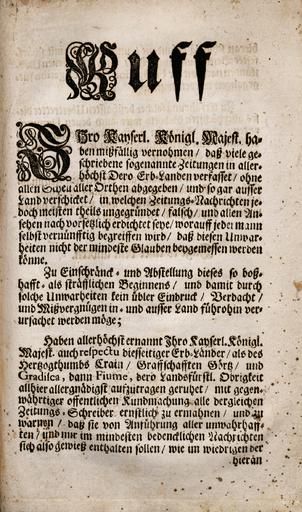 Ruff
Ihro Kayserl. Königl. Majest. ha-
ben mißfällig vernohmen / daß viele ge-
schriebene sogenannte Zeitungen in aller-
höchst Dero Erb-Landen verfasset / ohne
allen Scheu aller Orthen abgegeben / und so gar ausser
Land verschicket / in welchen Zeitungs-Nachrichten je-
doch meisten theils ungegründet / falsch / und allen An-
sehen nach vorsetzlich erdichtet seye / worauff jedermann
selbst vernünfftig begreiffen wird / daß diesen Unwar-
heiten nicht der mindeste Glauben beygemessen werden
könne.
Zu Einschränck- und Abstellung dieses so boß-
hafft- als sträfflichen Beginnens / und damit durch
solche Unwarheiten kein übler Eindruck / Verdacht /
und Mißvergnügen in- und ausser Land führohin ver-
ursachet werden möge;
Haben allerhöchst ernannt Ihro Kayserl. Königl.
Majest. auch respectu diesseitiger Erb-Länder / als des
Hertzogthumbs Crain / Graffschafften Görtz / und
Gradisca, dann Fiume, dero Landsfürstl. Obrigkeit
allhier allergnädigst auffzutragen geruhet / mit gegen-
währtiger offentlichen Kundmachung alle dergleichen
Zeitungs-Schreiber ernstlich zu ermahnen / und zu
warnen / daß sie von Anführung aller unwahrhaff-
ten / und nur im mindesten bedencklichen Nachrichten
sich also gewiß enthalten sollen / wie im wiedrigen der
hieran